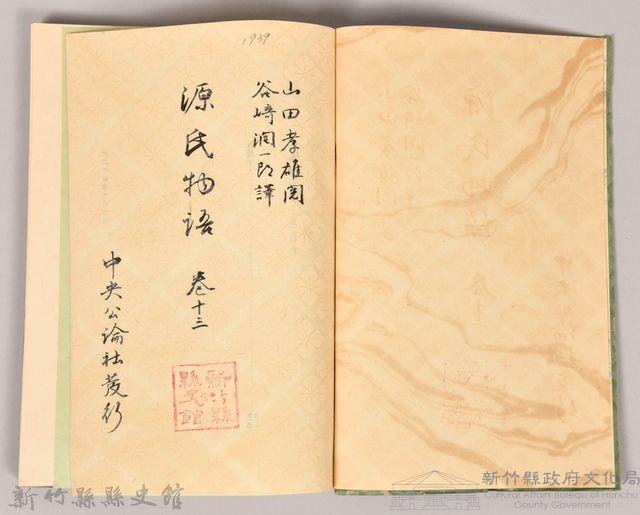 1939
山田孝雄閲
谷崎潤一郎譯
源氏物語 卷十三
中央公論社發行
新竹縣
縣史館
新竹縣縣史館
新竹縣政府文化局
Cultural Affairs Bureau of Hsinchu
County Government